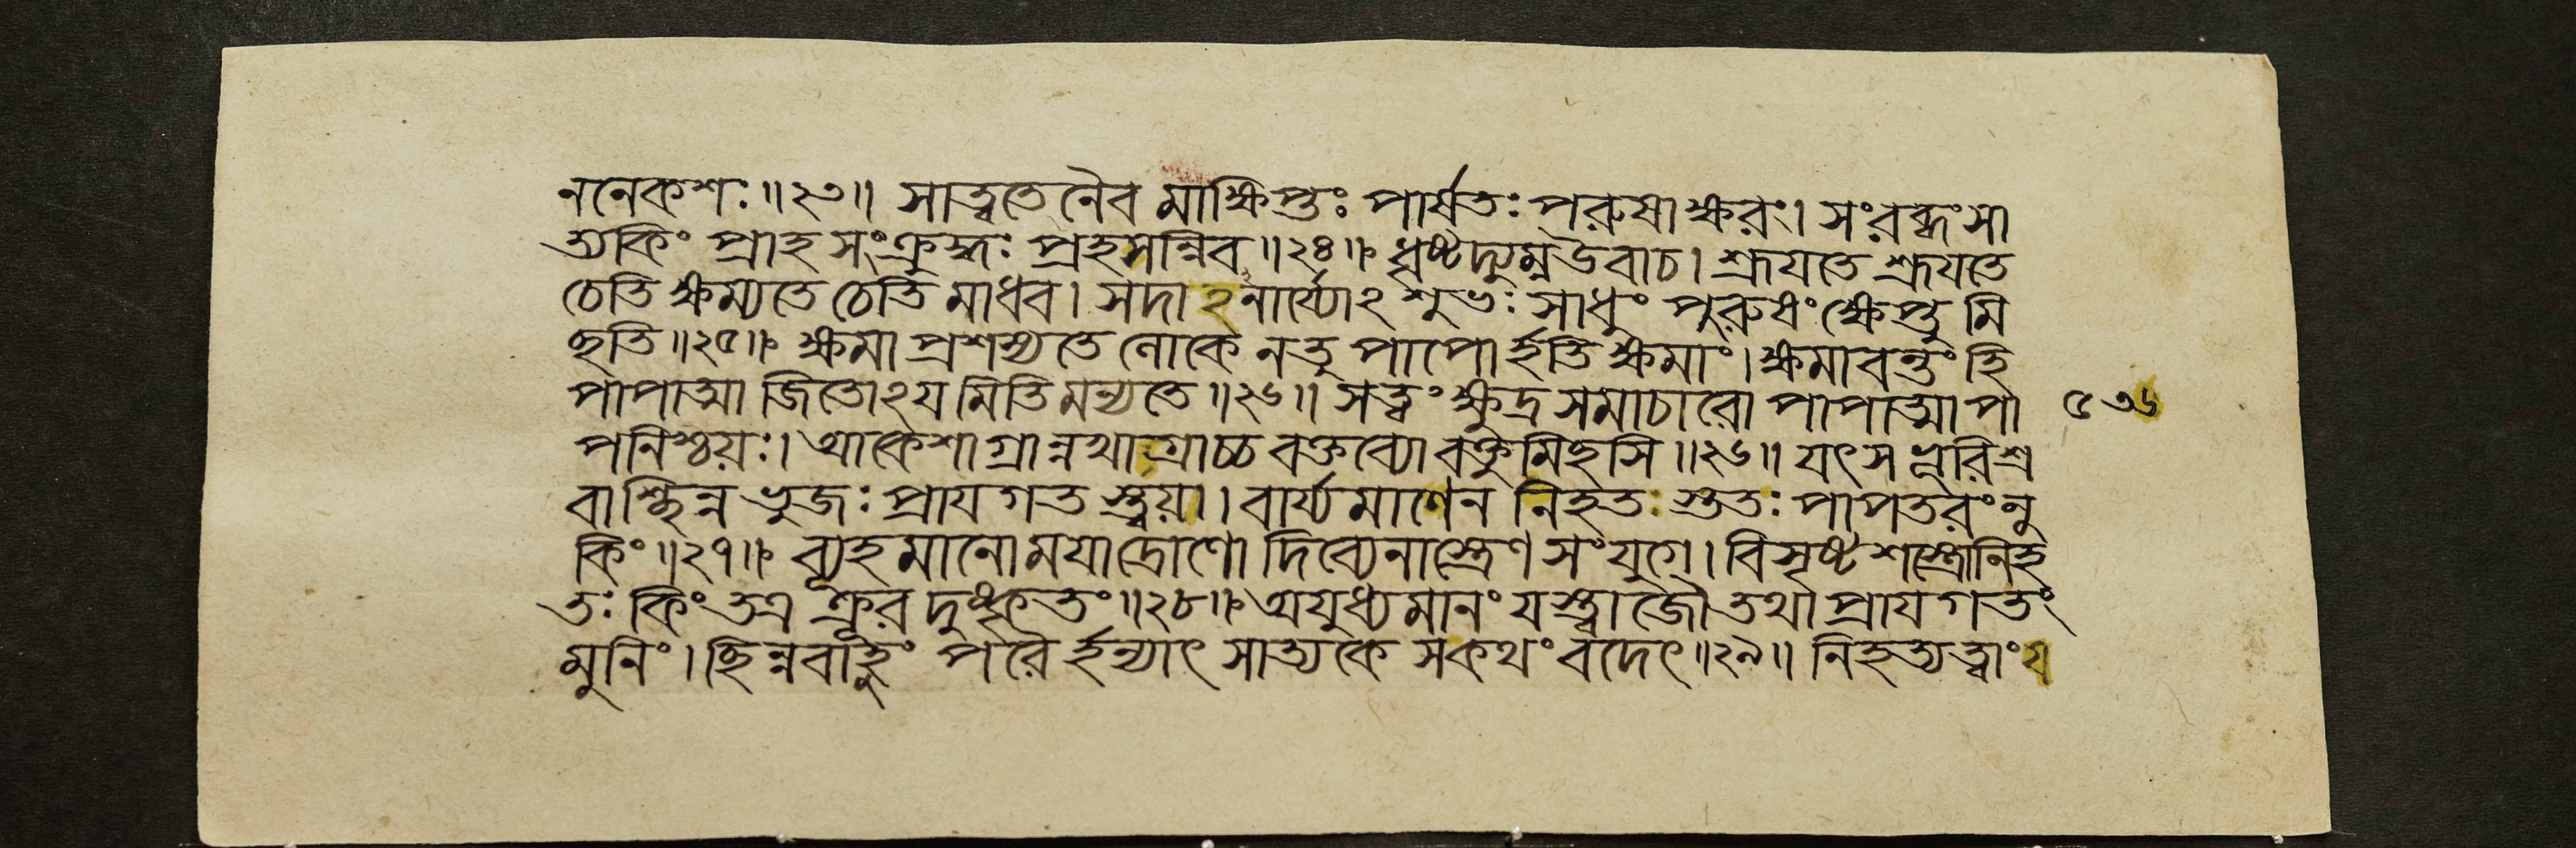 ননেকশঃ॥২৩॥ সাত্বতেনৈব মাক্ষিপ্তঃ পার্ষতঃ পরুষাক্ষরং। সংরব্ধংসা
ত্যকিং প্রাহ সংক্রুদ্ধঃ প্রহসন্নিব॥২৪॥ ধৃষ্টদ্যুম্নউবাচ। শ্রূযতে শ্রূযতে
চেতি ক্ষম্যতে চেতি মাধব। সদাঽনার্য্যোঽশুভঃ সাধুং পুরুষং ক্ষেপ্তুমি
ছতি॥২৫॥ ক্ষমা প্রশস্যতে লোকে নতু পাপোর্হতি ক্ষমাং। ক্ষমাবন্তং হি
পাপাত্মা জিতোঽযমিতিমন্যতে॥২৬॥ সত্বং ক্ষুদ্রসমাচারো পাপাত্মা পা
পনিশ্চয়ঃ। আকেশাগ্রান্নখাগ্রাচ্চ বক্তব্যো বক্তুমিছসি॥২৬॥ যৎস ভূরিশ্র
বাশ্ছিন্নভুজঃ প্রাযগতস্ত্বয়া। বার্য্যমাণেন নিহতস্ততঃ পাপতরংনু
কিং॥২৭॥ ব্যূহমানোমযাদ্রোণো দিব্যেনাস্ত্রেণ সংযুগে। বিসৃষ্টশস্ত্রোনিহ
তঃ কিংতত্র ক্রূর দুষ্কৃতং॥২৮॥ অযুধ্যমানং যস্ত্বাজৌ তথা প্রাযগতং
মুনিং। ছিন্নবাহুং পরৈর্হন্যাৎ সাত্যকে সকথং বদেৎ॥২৯॥ নিহত্যত্বাংয
৫৩৬